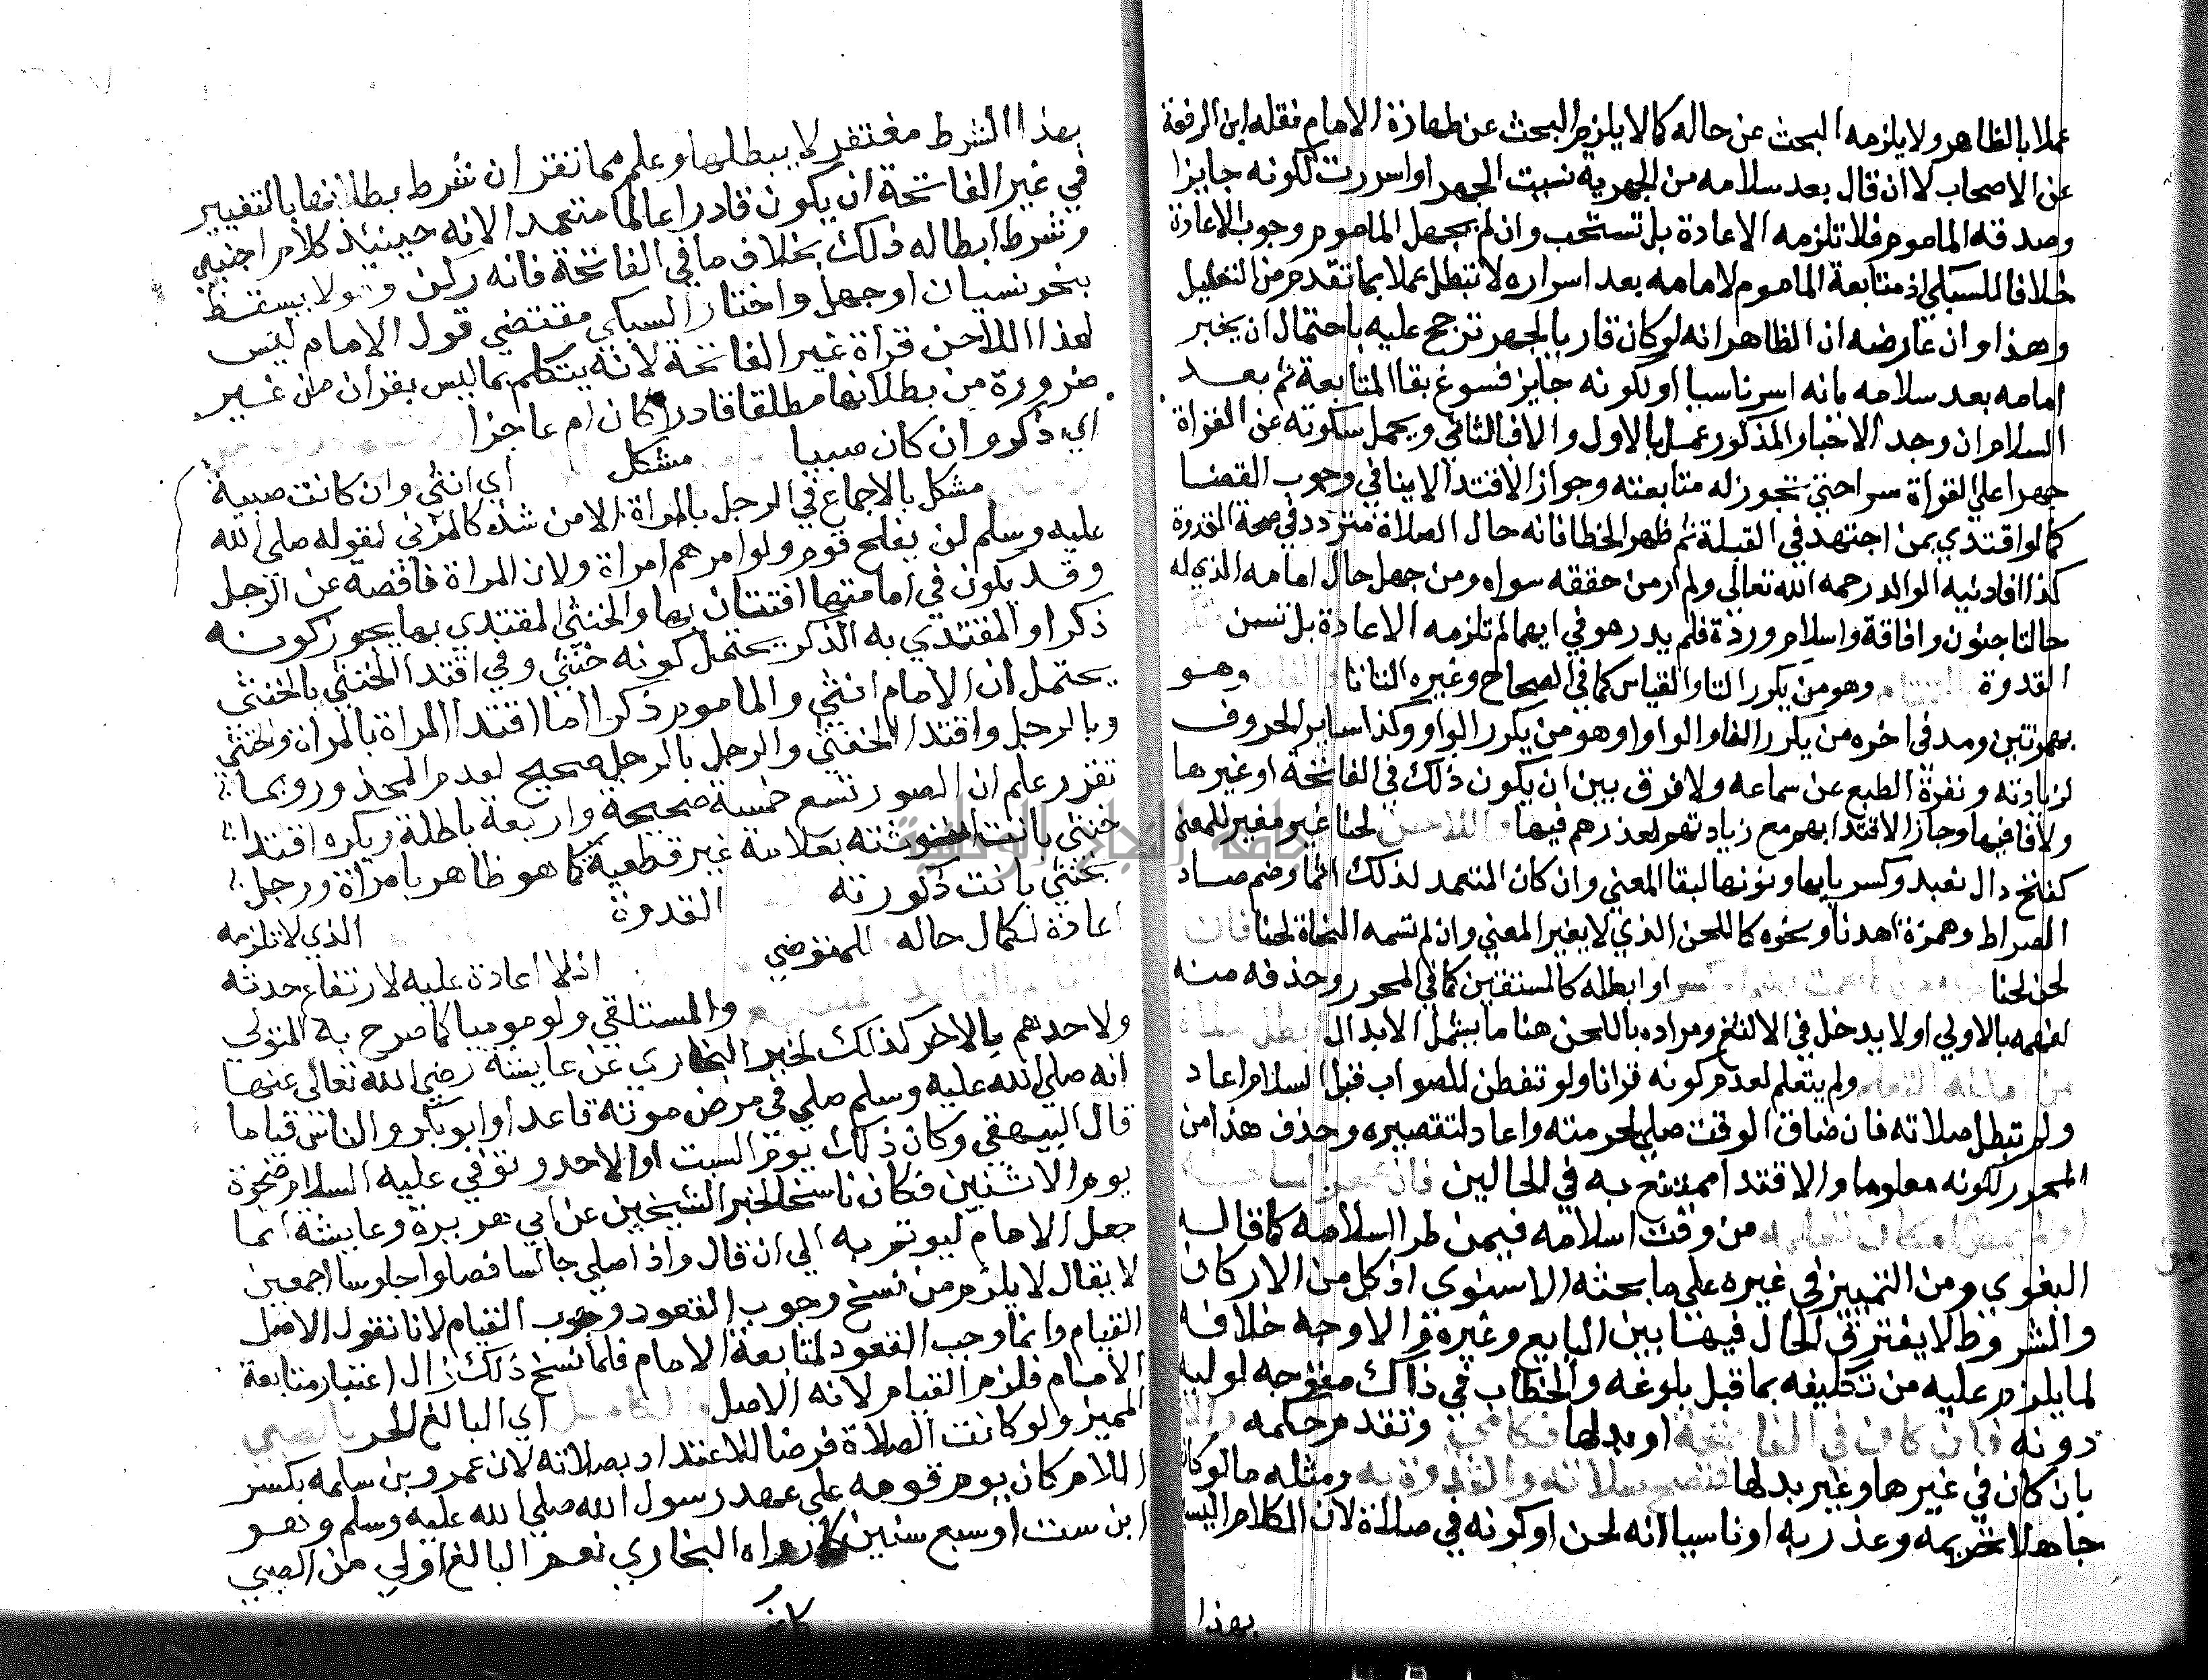 عملا بالظاهر ولا يلزمه البحث عن حاله كما لا يلزم البحث عن طهارة الامام نقله ابن الرفعة
عن الاصحاب لا ان قال بعد سلامه من الجهرية نسيت الجهر او اسررت لكونه جايزا
وصدقه الماموم فلا تلزمه الاعادة بل تستحب وان لم يجهل الماموم وجوب الاعادة
خلافا للسبكي اذ متابعة الماموم لامامه بعد اسراره لا تبطل عملا بما تقدم من التعليل
وهذا وان عارضه ان الظاهر انه لو كان قاريا لجهر ترجح عليه باحتمال ان يخبر
امامه بعد سلامه بانه اسر ناسيا او لكونه جايز فسوغ بقا المتابعة ثم بعد
السلام ان وجد الاخبار المذكور عمل بالاول والا فبالثاني ويحمل سكوته عن القراة
جهرا على القراة سرا حتى تجوز له متابعته وجواز الاقتدا لا ينافي وجوب القضا
كما لو اقتدي بمن اجتهد في القبلة ثم ظهر الخطا فانه حال الصلاة متردد في صحة القدوة
كذا افادنيه الوالد رحمه الله تعالي ولم ار من حققه سواه ومن جهل حال امامه الذي له
حالتا جنون وافاقة واسلام وردة فلم يدر هو في ايهما لم تلزمه الاعادة بل تسن
القدوة وهو من يكرر التا والقياس كما في الصحاح وغيره التاتا وهو
بهمزتين ومد في اخره من يكرر الفا والواوا وهو من يكرر الواو وكذا ساير الحروف
لزيادته ونفرة الطبع عن سماعه ولا فرق بين ان يكون ذلك في الفاتحة او غيرها
ولا فا فيها وجاز الاقتدا بهم مع زيادتهم لعذرهم فيها واللاحن لحنا غير مغير للمعنى
كفتح دال نعبد وكسر بايها ونونها لبقا المعني وان كان المتعمد لذلك اثما وضم صاد
الصراط وهمزة اهدنا ونحوه كاللحن الذي لا يغير المعني وان لم تسمه النحاة لحنا فان
لحن لحنا او ابطله كالمستقين كما في المحرر وحذفه منه
لفهمه بالاولي او لا يدخل في الالثغ ومراده باللحن هنا ما يشمل الابدال
ولم يتعلم لعدم كونه قرانا ولو تفطن للصواب قبل السلام اعاد
ولم تبطل صلاته فان ضاق الوقت صلي لحرمته واعاد لتقصيره وحذف هذا من
المحرر لكونه معلوما والاقتدا ممتنع به في الحالين
من وقت اسلامه فيمن طرا اسلامه كما قاله
البغوي ومن التمييز في غيره على ما بحثه الاسنوي اذ كل من الاركان
والشروط لا يفترق الحال فيهنا بين البايع وغيره والاوجه خلافه
لما يلزم عليه من تكليفه بما قبل بلوغه والخطاب في ذاك متوجه لوليه
دونه فان كان في الفاتحة او بدلها فكامي وتقدم حكمه
بان كان في غيرها وغير بدلها فتصح صلاته والقدوة به ومثله ما لو كان
جاهلا تحريمه وعذر به او ناسيا انه لحن او كونه في صلاة لان الكلام اليسير
بهذا
بهذا الشرط مغتفر لا يبطلها وعلم مما تقرر ان شرط بطلانها بالتغيير
في غير الفاتحة ان يكون قادرا عالما متعمدا لانه حينئذ كلام اجنبي
وشرط ابطاله ذلك بخلاف ما في الفاتحة فانه ركن وهو لا يسقط
بنحو نسيان او جهل واختار السبكي مقتضي قول الامام ليس
لهذا اللاحن قراة غير الفاتحة لانه يتكلم بما ليس بقران من غير
ضرورة من بطلانها مطلقا قادرا كان ام عاجزا
اي ذكر وان كان صبيا مشكل اي انثي وان كانت صبية
مشكل بالاجماع في الرجل بالمراة الا من شذ كالمزني لقوله صلى الله
عليه وسلم لن يفلح قوم ولوا امرهم امراة ولان المراة ناقصة عن الرجل
وقد يكون في امامتها افتتان بها والخنثي المقتدي بها يجوز كونه
ذكرا والمقتدي به الذكر يحتمل كونه خنثي وفي اقتدا الخنثي بالخنثى
يحتمل ان الامام انثي والماموم ذكر اما اقتدا المراة بالمراة والخنثي
وبالرجل واقتدا الخنثي والرجل بالرجل صحيح لعدم المحذور وبما
تقرر علم ان الصور تسع خمسة صحيحة واربعة باطلة ويكره اقتدا
خنثي بانت انوثته بعلامة غير قطعية كما هو ظاهر بامراة ورجل
بخنثي بانت ذكورته القدوة الذي لا تلزمه
اعادة لكمال حاله للمتوضي اذ لا اعادة عليه لارتفاع حدثه
والمستلقي ولو موميا كما صرح به المتولي
ولاحدهم بالاخر كذلك لخبر البخاري عن عايشة رضي الله تعالى عنها
انه صلى الله عليه وسلم صلي في مرض موته قاعدا وابو بكر والناس قياما
قال البيهقي وكان ذلك يوم السبت او الاحد وتوفي عليه السلام ضحوة
يوم الاثنين فكان ناسخا لخبر الشيخين عن ابي هريرة وعايشة انما
جعل الامام ليوتم به الي ان قال واذا صلي جالسا فصلوا جلوسا اجمعين
لا يقال لا يلزم من نسخ وجوب القعود وجوب القيام لانا نقول الاصل
القيام وانما وجب القعود لمتابعة الامام فلما نسخ ذلك زال اعتبار متابعة
الامام فلزم القيام لانه الاصل اي البالغ الحر بالصبي
المميز ولو كانت الصلاة فرضا للاعتداد بصلاته لان عمرو بن سلمه بكسر
اللام كان يوم قومه على عهد رسول الله صلي الله عليه وسلم وهو
ابن ست او سبع سنين رواه البخاري نعم البالغ اولي من الصبي